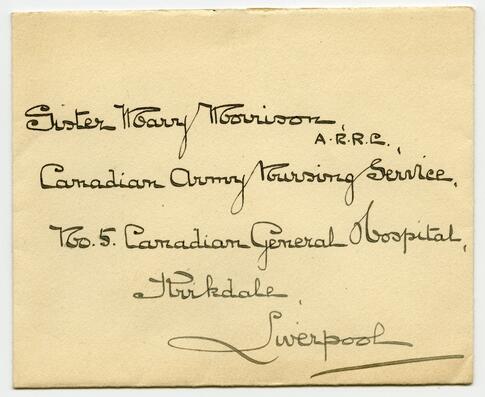 Sister Mary Morrison,
A.R.R.C.,
Canadian Army Nursing Service,
No. 5. Canadian General Hospital,
Kirkdale,
Liverpool